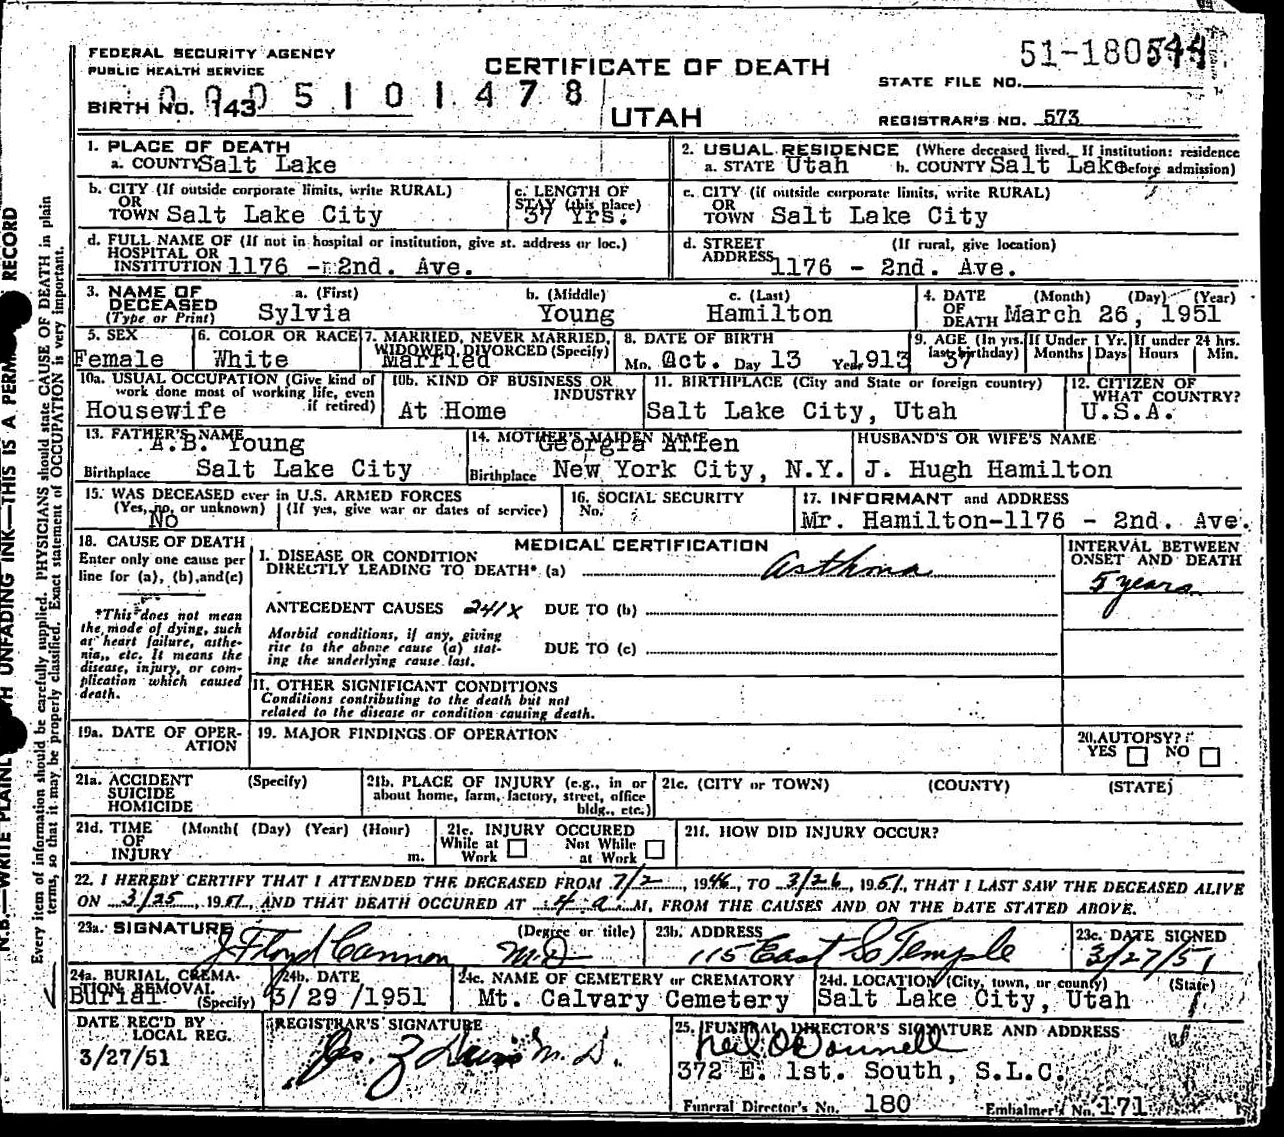 FEDERAL SECURITY AGENCY
PUBLIC HEALTH SERVICE
BIRTH NO. 143
0 0 0 5 1 0 1 4 7 8
CERTIFICATE OF DEATH
UTAH
51-180544
STATE FILE NO.
REGISTRAR'S NO. 573
1. PLACE OF DEATH
a. COUNTY Salt Lake
2. USUAL RESIDENCE (Where deceased lived. If institution: residence before admission)
a. STATE Utah b. COUNTY Salt Lake
b. CITY (If outside corporate limits, write RURAL)
OR
TOWN Salt Lake City
c. LENGTH OF
STAY (this place)
37 Yrs.
c. CITY (if outside corporate limits, write RURAL)
OR
TOWN Salt Lake City
d. FULL NAME OF (If not in hospital or institution, give st. address or loc.)
HOSPITAL OR
INSTITUTION 1176 - 2nd. Ave.
d. STREET (If rural, give location)
ADDRESS 1176 - 2nd. Ave.
3. NAME OF
DECEASED
(Type or Print)
a. (First) b. (Middle) c. (Last)
Sylvia Young Hamilton
4. DATE (Month) (Day) (Year)
OF
DEATH March 26, 1951
5. SEX
Female
6. COLOR OR RACE
White
7. MARRIED, NEVER MARRIED,
WIDOWED, DIVORCED (Specify)
Married
8. DATE OF BIRTH
Mo. Oct. Day 13 Year 1913
9. AGE (In yrs.
last birthday)
37
If Under 1 Yr.
Months Days
If under 24 hrs.
Hours Min.
10a. USUAL OCCUPATION (Give kind of
work done most of working life, even
if retired)
Housewife
10b. KIND OF BUSINESS OR
INDUSTRY
At Home
11. BIRTHPLACE (City and State or foreign country)
Salt Lake City, Utah
12. CITIZEN OF
WHAT COUNTRY?
U.S.A.
13. FATHER'S NAME
A.B. Young
Birthplace Salt Lake City
14. MOTHER'S MAIDEN NAME
Georgia Allen
Birthplace New York City, N.Y.
HUSBAND'S OR WIFE'S NAME
J. Hugh Hamilton
15. WAS DECEASED ever in U.S. ARMED FORCES
(Yes, no, or unknown) (If yes, give war or dates of service)
No
16. SOCIAL SECURITY
No.
17. INFORMANT and ADDRESS
Mr. Hamilton-1176 - 2nd. Ave.
18. CAUSE OF DEATH
Enter only one cause per
line for (a), (b), and (c)
*This does not mean
the mode of dying, such
as heart failure, asthe-
nia, etc. It means the
disease, injury, or com-
plication which caused
death.
MEDICAL CERTIFICATION
I. DISEASE OR CONDITION
DIRECTLY LEADING TO DEATH* (a) asthma
ANTECEDENT CAUSES 241X DUE TO (b)
Morbid conditions, if any, giving
rise to the above cause (a) stat-
ing the underlying cause last.
DUE TO (c)
II. OTHER SIGNIFICANT CONDITIONS
Conditions contributing to the death but not
related to the disease or condition causing death.
INTERVAL BETWEEN
ONSET AND DEATH
5 years
19a. DATE OF OPER-
ATION
19. MAJOR FINDINGS OF OPERATION
20. AUTOPSY?
YES NO
21a. ACCIDENT (Specify)
SUICIDE
HOMICIDE
21b. PLACE OF INJURY (e.g., in or
about home, farm, factory, street, office
bldg., etc.)
21c. (CITY or TOWN) (COUNTY) (STATE)
21d. TIME (Month( (Day) (Year) (Hour)
OF
INJURY m.
21e. INJURY OCCURED
While at Work Not While at Work
21f. HOW DID INJURY OCCUR?
22. I HEREBY CERTIFY THAT I ATTENDED THE DECEASED FROM 7/2, 1946, TO 3/26, 1951, THAT I LAST SAW THE DECEASED ALIVE
ON 3/25, 1951, AND THAT DEATH OCCURED AT 4 a. M, FROM THE CAUSES AND ON THE DATE STATED ABOVE.
23a. SIGNATURE (Degree or title)
J Floyd Cannon M.D
23b. ADDRESS
115 East So Temple
23c. DATE SIGNED
3/27/51
24a. BURIAL, CREMA-
TION REMOVAL
(Specify)
Burial
24b. DATE
3/29/1951
24c. NAME OF CEMETERY or CREMATORY
Mt. Calvary Cemetery
24d. LOCATION (City, town, or county) (State)
Salt Lake City, Utah
DATE REC'D BY
LOCAL REG.
3/27/51
REGISTRAR'S SIGNATURE
M. D.
25. FUNERAL DIRECTOR'S SIGNATURE AND ADDRESS
Neil O'Donnell
372 E. 1st. South, S.L.C.
Funeral Director's No. 180 Embalmer's No. 171
N.B.—WRITE PLAINLY UNFADING INK—THIS IS A RECORD
Every item of information should be carefully supplied. PHYSICIANS should state CAUSE OF DEATH in plain
terms, so that it may be properly classified. Exact statement of OCCUPATION is very important.